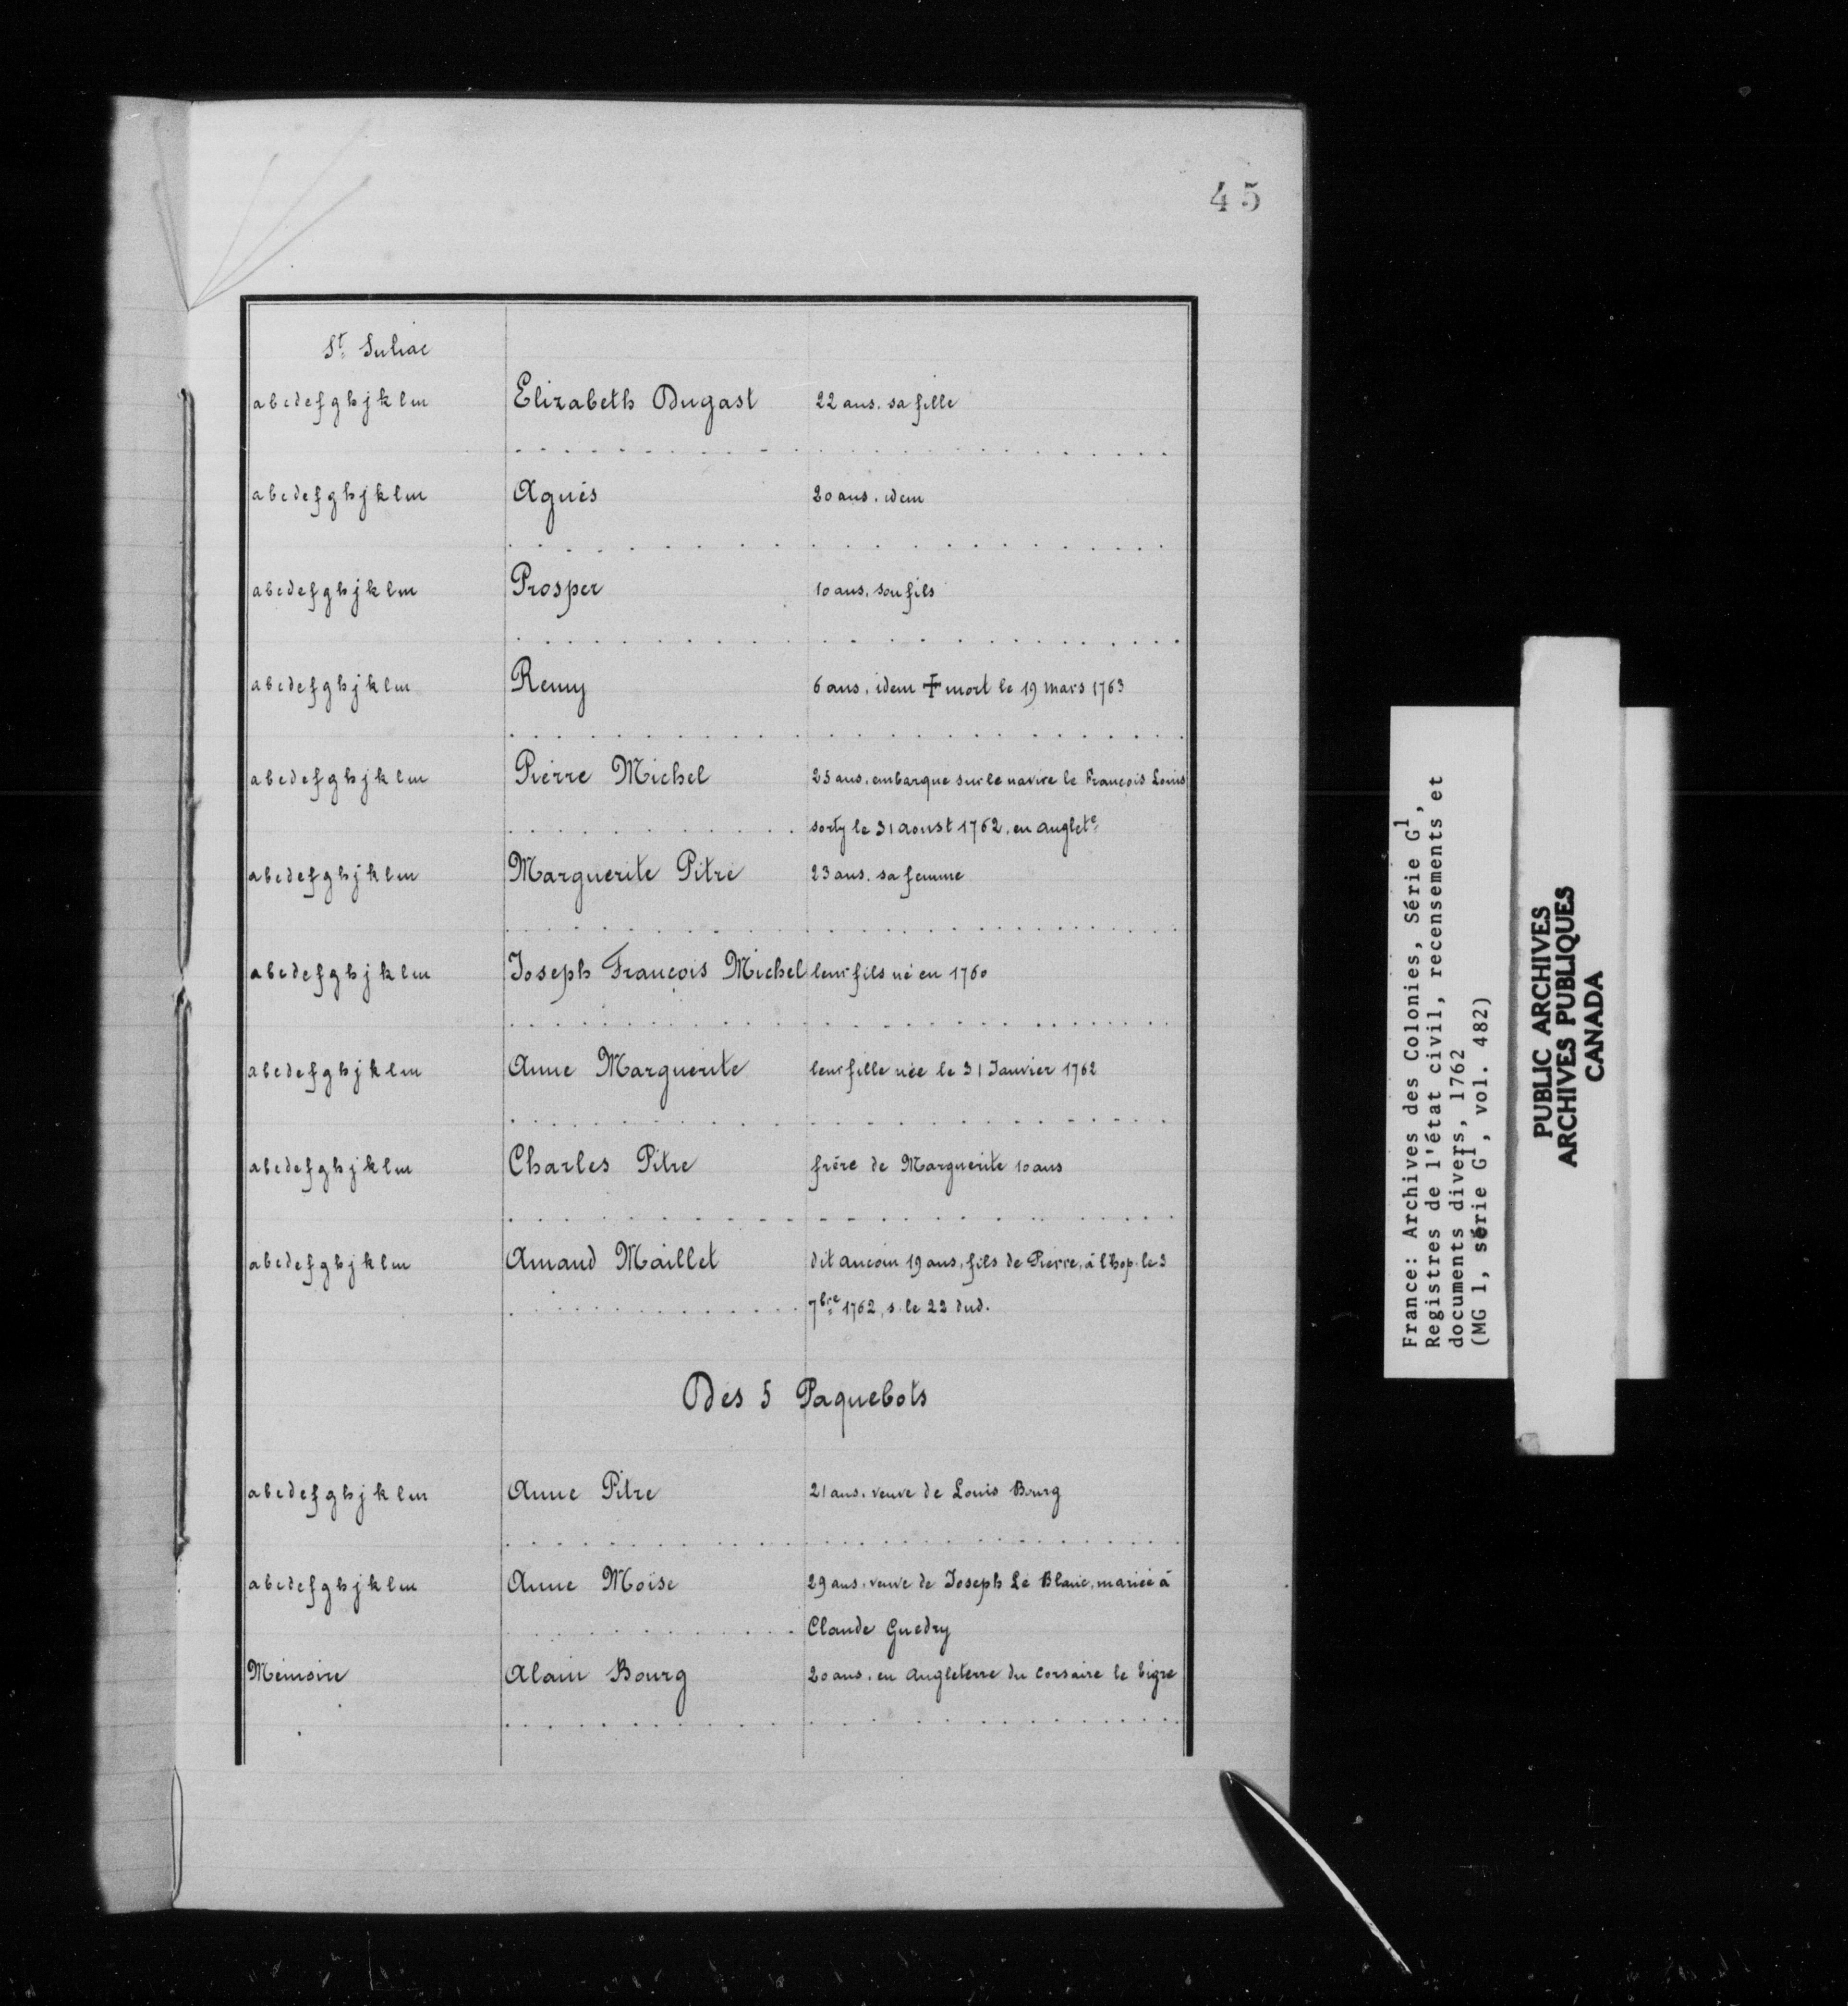 45
St. Suliac
abcdefghjklm Elizabeth Dugast 22 ans. sa fille
abcdefghjklm Agnés 20 ans. idem
abcdefghjklm Prosper 10 ans. son fils
abcdefghjklm Remy 6 ans. idem ‡ mort le 19 mars 1763
abcdefghjklm Pierre Michel 25 ans. embarque sur le navire le François Louis
sorty le 31 aoust 1762, en anglete.
abcdefghjklm Marguerite Pitre 23 ans. sa femme
abcdefghjklm Joseph François Michel leur fils né en 1760
abcdefghjklm Anne Marguerite leur fille née le 31 Janvier 1762
abcdefghjklm Charles Pitre frére de Marguerite 10 ans
abcdefghjklm Amand Maillet dit aucoin 19 ans, fils de Pierre, à l'hop. le 3
7bre 1762, s. le 22 dud.
Des 5 Paquebots
abcdefghjklm Anne Pitre 21 ans. veuve de Louis Bourg
abcdefghjklm Anne Moïse 29 ans. veuve de Joseph Le Blanc, mariée à
Claude Guedry
Mémoire Alain Bourg 20 ans. en Angleterre du corsaire le tigre
France: Archives des Colonies, Série G1,
Registres de l'état civil, recensements et
documents divers, 1762
(MG 1, série G1, vol. 482)
PUBLIC ARCHIVES
ARCHIVES PUBLIQUES
CANADA